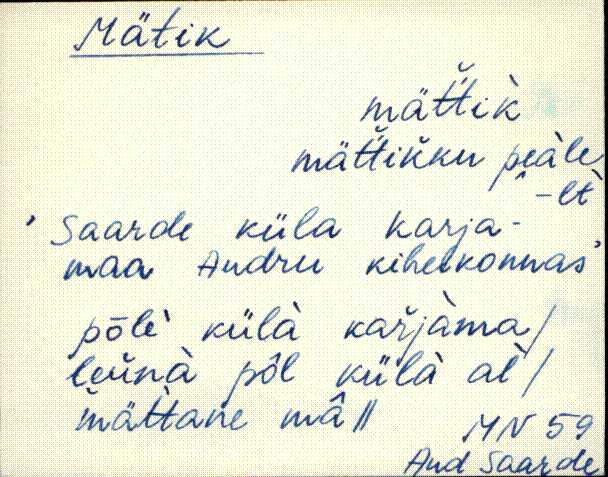 Mätik
mät̆t̆ik̀
mät̆t̆ik̆ku peàle
-lt̀
'Saarde küla karja-
maa Audru kihelkonnas'
pōlè külà kar̆jàma/
leŭnà pôl külà al̀/
mät̆tane mâ//
MN 59
Aud Saarde